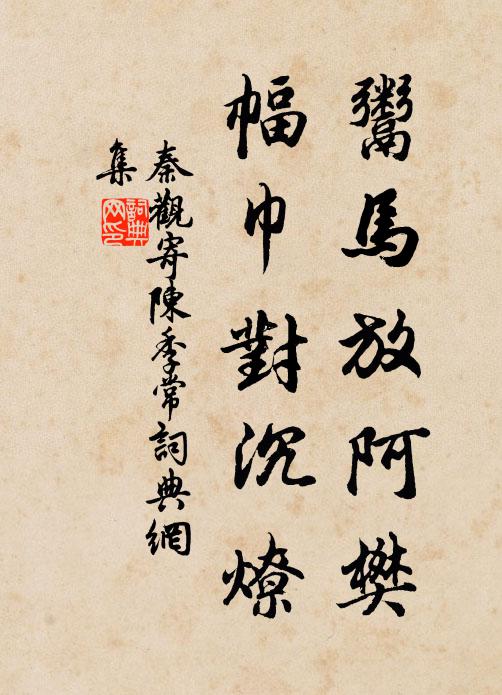 鬻馬放阿樊
幅巾對沉燎
秦觀寄陳季常詞典網
集
詞典
网印